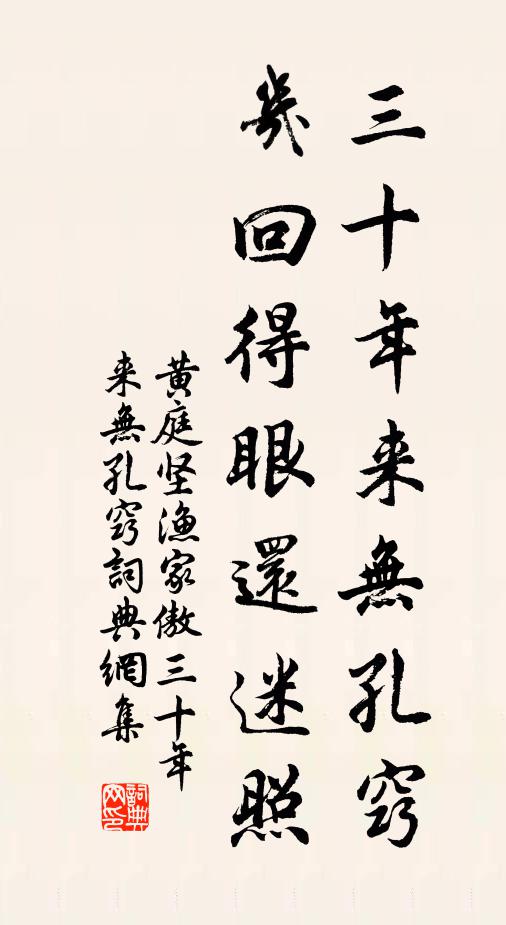 三十年来無孔窍
幾回得眼還迷照
黄庭坚漁家傲三十年
来無孔窍詞典網集
詞典
网印